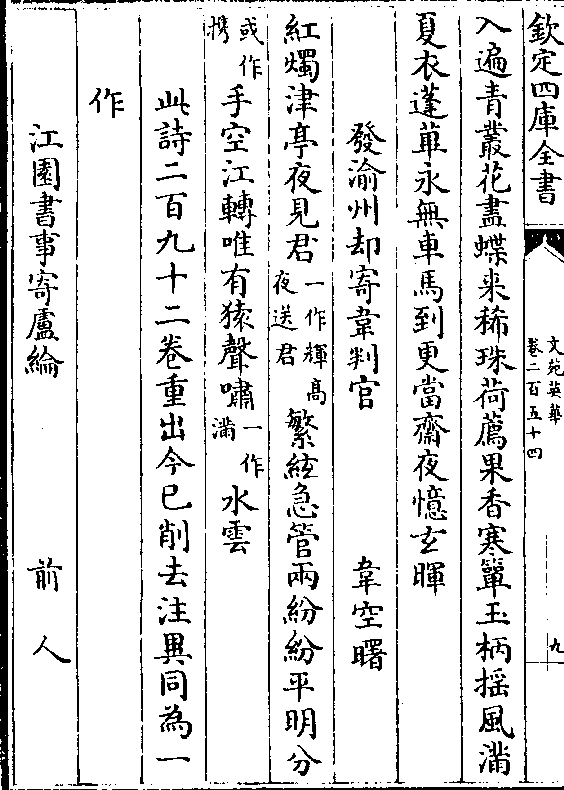 欽定四庫全書
文苑英華
卷二百五十四
九
入遍青叢花盡蝶来稀珠荷薦果香寒簟玉柄揺風滿
夏衣蓬萆永無車馬到更當齋夜憶玄暉
發渝州却寄韋判官　韋空曙
紅燭津亭夜見君一作輝髙夜送君繁絃急管兩紛紛平明分
或作携手空江轉唯有猿聲嘯一作滿水雲
此詩二百九十二卷重出今已削去注異同為一
作
江園書事寄盧綸　前人